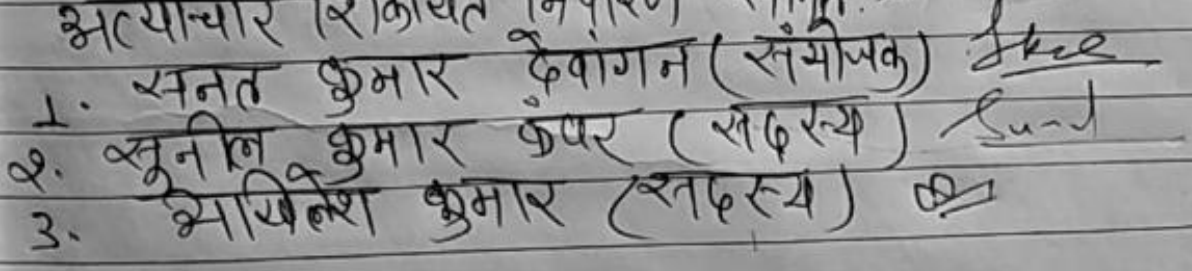 अत्याचार शिकायत निवारण
1. सनत कुमार देवांगन (संयोजक)
2. सुनील कुमार कंवर (सदस्य)
3. अखिलेश कुमार (सदस्य)